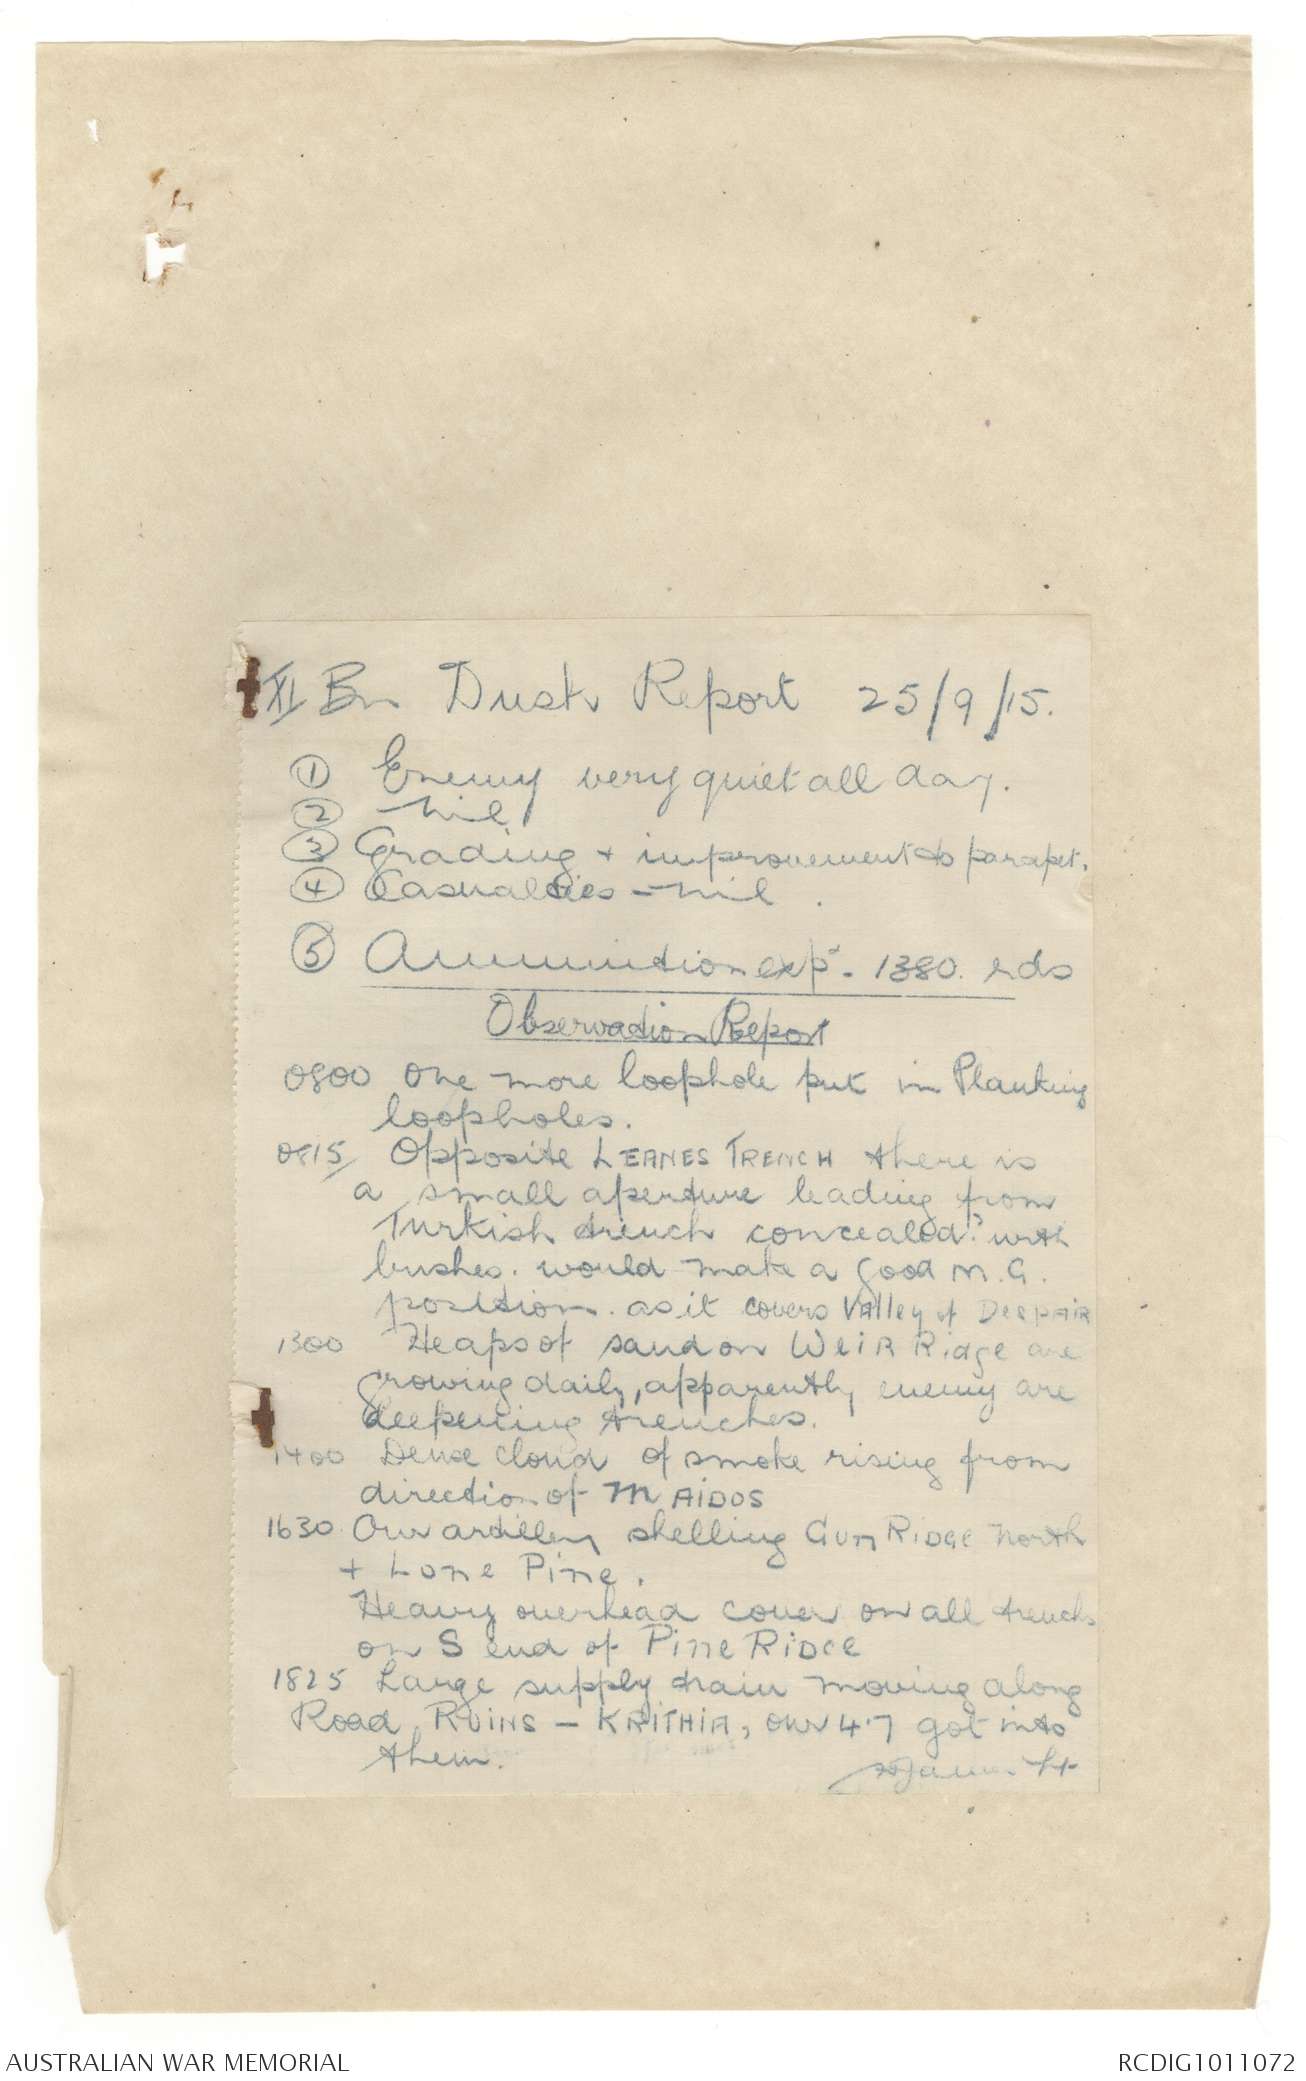 XI Bn Dusk Report 25/9/15.
① Enemy very quiet all day.
② Nil
③ Grading + improvement to parapet.
④ Casualties - Nil.
⑤ Ammunition expd. 1380. rds
Observation Report
0800 One more loophole put in Planking
loopholes.
0815 Opposite LEANES TRENCH there is
a small aperture leading from
Turkish trench concealed? with
bushes. would make a good M.G.
position. as it covers VAlley of DESPAIR
1300 Heaps of sand on WEIR Ridge are
growing daily, apparently enemy are
deepening trenches.
1400 Dense cloud of smoke rising from
direction of MAIDOS
1630 Our artillery shelling GUN RIDGE North
+ Lone Pine.
Heavy overhead cover on all trenchs
on S end of PINE RIDGE
1825 Large supply train moving along
Road RUINS - KRITHIA, our 4.7 got into
them.
Lt
AUSTRALIAN WAR MEMORIAL
RCDIG1011072